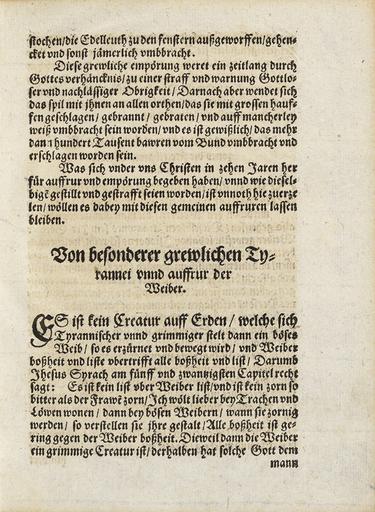 stochen/die Edelleuth zu den fenstern außgeworffen/gehen-
cket vnd sonst jämerlich vmbbracht.
Diese grewliche empörung weret ein zeitlang durch
Gottes verhäncknis/zu einer straff vnd warnung Gottlo-
ser vnd nachlässiger Obrigkeit/ Darnach aber wendet sich
das spil mit jhnen an allen orthen/das sie mit grossen hauf-
fen geschlagen/ gebrannt/ gebraten/ vnd auff mancherley
weiß vmbbracht sein worden/ vnd es ist gewißlich/ das mehr
dan hundert Tausent bawren vom Bund vmbbracht vnd
erschlagen worden sein.
Was sich vnder vns Christen in zehen Jaren her
für auffrur vnd empörung begeben haben/ vnnd wie diesel-
bigẽ gestillt vnd gestrafft seien worden/ ist vnnoth hie zuerze
len/ wöllen es dabey mit diesen gemeinen auffruren lassen
bleiben.
Von besonderer grewlichen Ty-
rannei vnnd auffrur der
Weiber.
ES ist kein Creatur auff Erden/ welche sich
Tyrannischer vnnd grimmiger stelt dann ein böses
Weib/ so es erzürnet vnd bewegt wird/ vnd Weiber
boßheit vnd liste vbertrifft alle boßheit vnd list/ Darumb
Jhesus Syrach am fünff vnd zwantzigsten Capitel recht
sagt: Es ist kein list vber Weiber list/vnd ist kein zorn so
bitter als der Frawẽ zorn/ Jch wölt lieber bey Trachen vnd
Löwen wonen/ dann bey bösen Weibern/ wann sie zornig
werden/ so verstellen sie ihre gestalt/ Alle boßheit ist ge-
ring gegen der Weiber boßheit. Dieweil dann die Weiber
ein grimmige Creatur ist/ derhalben hat solche Gott dem
mann